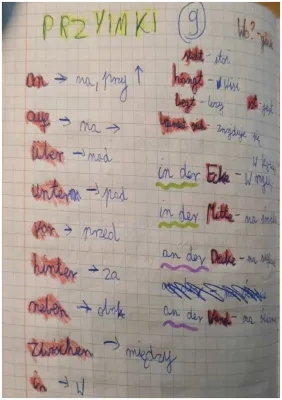 PRZYIMKI 9 Wo?
steht - stoi
an → na, przy ↑
hängt - wisi
liegt - leży ist - jest
auf → na →
befindet sich - znajduje się
über → nad
in der Ecke - w
unterm → pod
in der Mitte - na
von → przed
hinter → za
an der Decke - na
neben → obok
an der Wand - na ścianie
zwischen → między
in → w